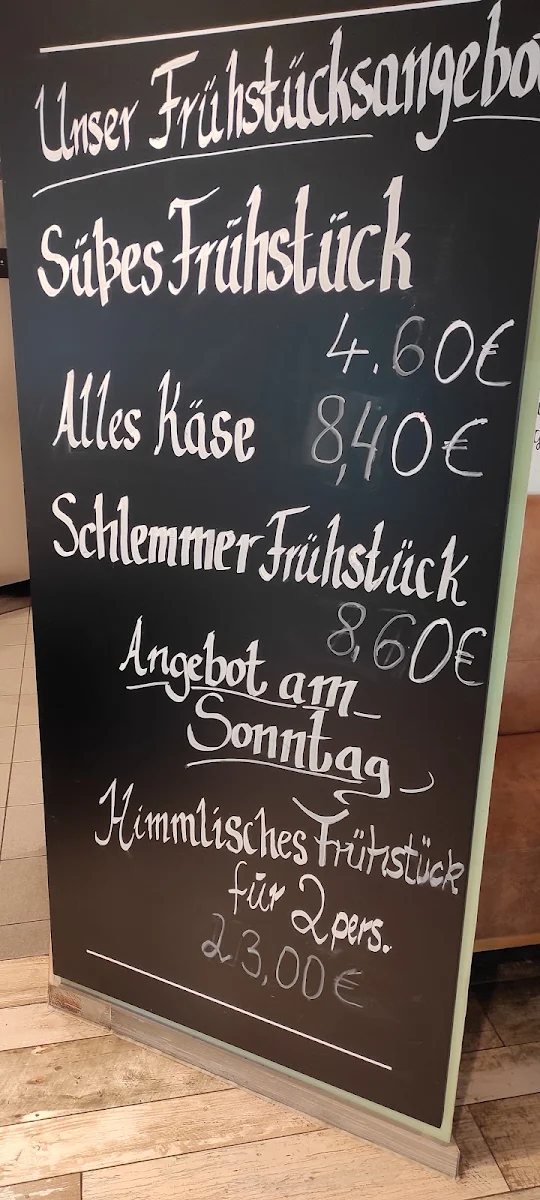 Unser Frühstücksangebo
Süßes Frühstück
4.60€
Alles Käse 8,40€
Schlemmer Frühstück
8,60€
Angebot am
Sonntag
Himmlisches Frühstück
für 2 pers.
23,00€